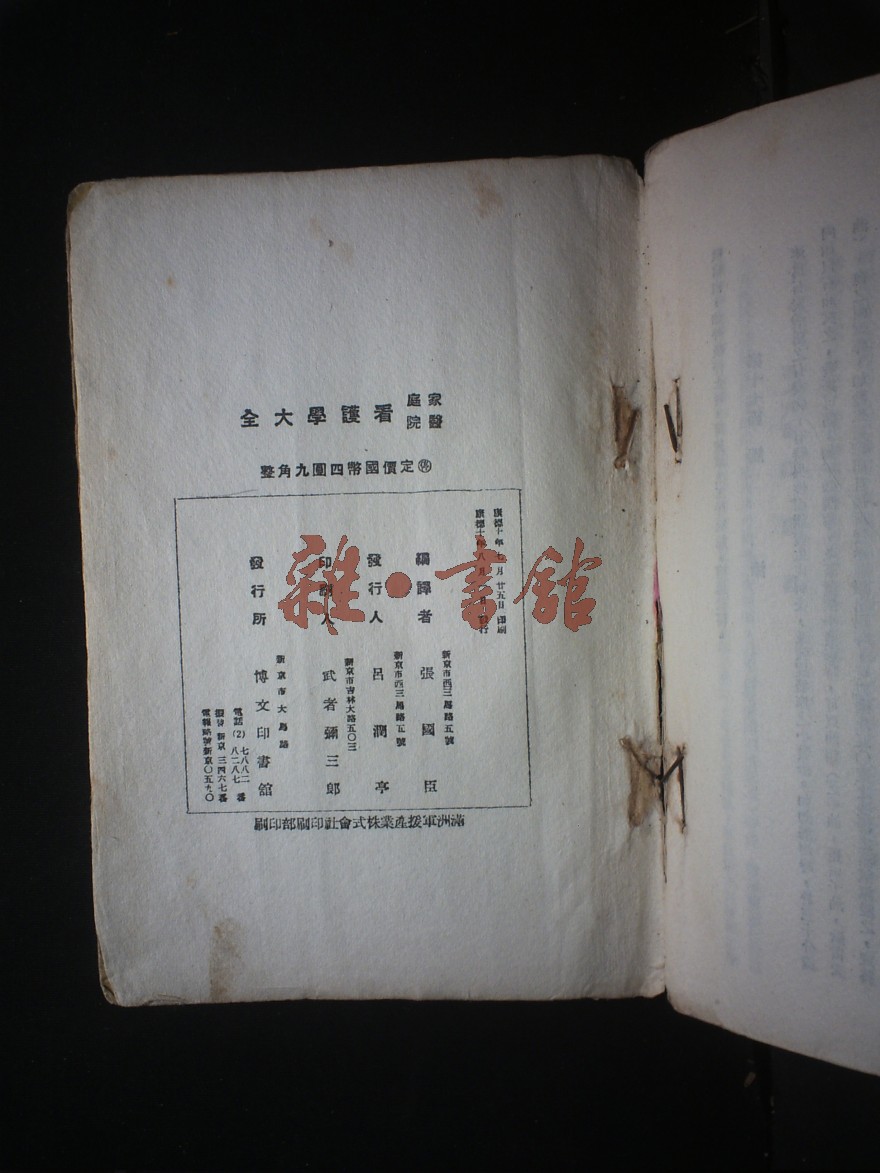 家庭
醫院
看護學大全
定價國幣四圓九角整
康德十年七月廿五日印刷
康德十年八月 日發行
新京市西三馬路五號
編譯者 張國臣
新京市西三馬路五號
發行人 呂潤亭
新京市吉林大路五〇三
印刷人 武者彌三郎
新京市大馬路
發行所 博文印書館
電話(2)七八八二番
八二八七番
振替新京三四六七番
電報略號新京〇五九〇
滿洲軍援產業株式會社印刷部印刷
雜·書館